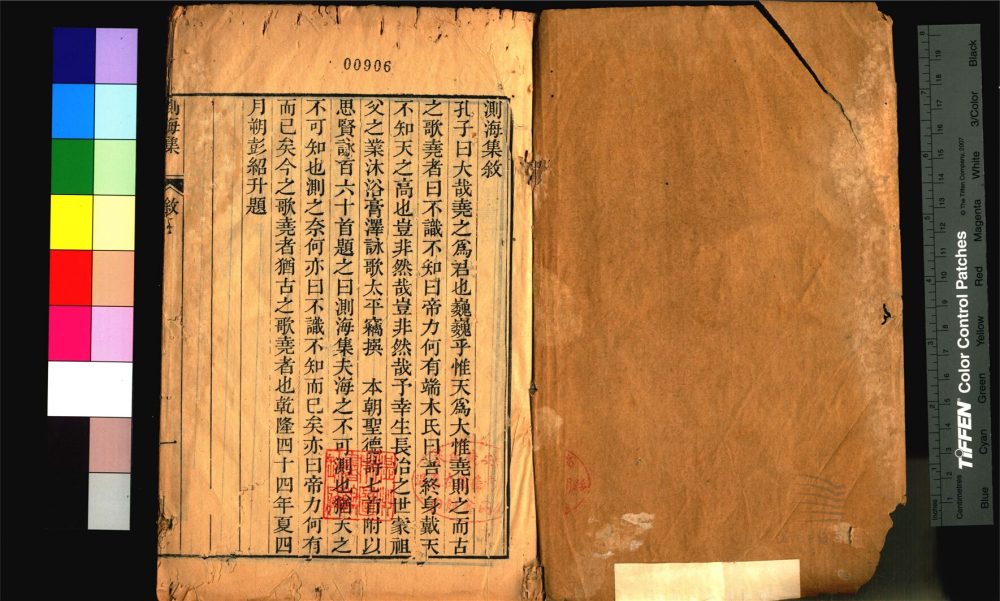 00906
測海集敘
孔子曰大哉堯之爲君也巍巍乎惟天爲大惟堯則之而古
之歌堯者曰不識不知曰帝力何有端木氏曰吾終身戴天
不知天之高也豈非然哉豈非然哉予幸生長治之世家祖
父之業沐浴膏澤詠歌太平竊撰 本朝聖德詩七首附以
思賢詠百六十首題之曰測海集夫海之不可測也猶天之
不可知也測之奈何亦曰不識不知而已矣亦曰帝力何有
而已矣今之歌堯者猶古之歌堯者也乾隆四十四年夏四
月朔彭紹升題
測海集
敘
一
TIFFEN Color Control Patches
© The Tiffen Company, 2007
Centimetres
Inches
Blue
Cyan
Green
Yellow
Red
Magenta
White
3/Color
Black